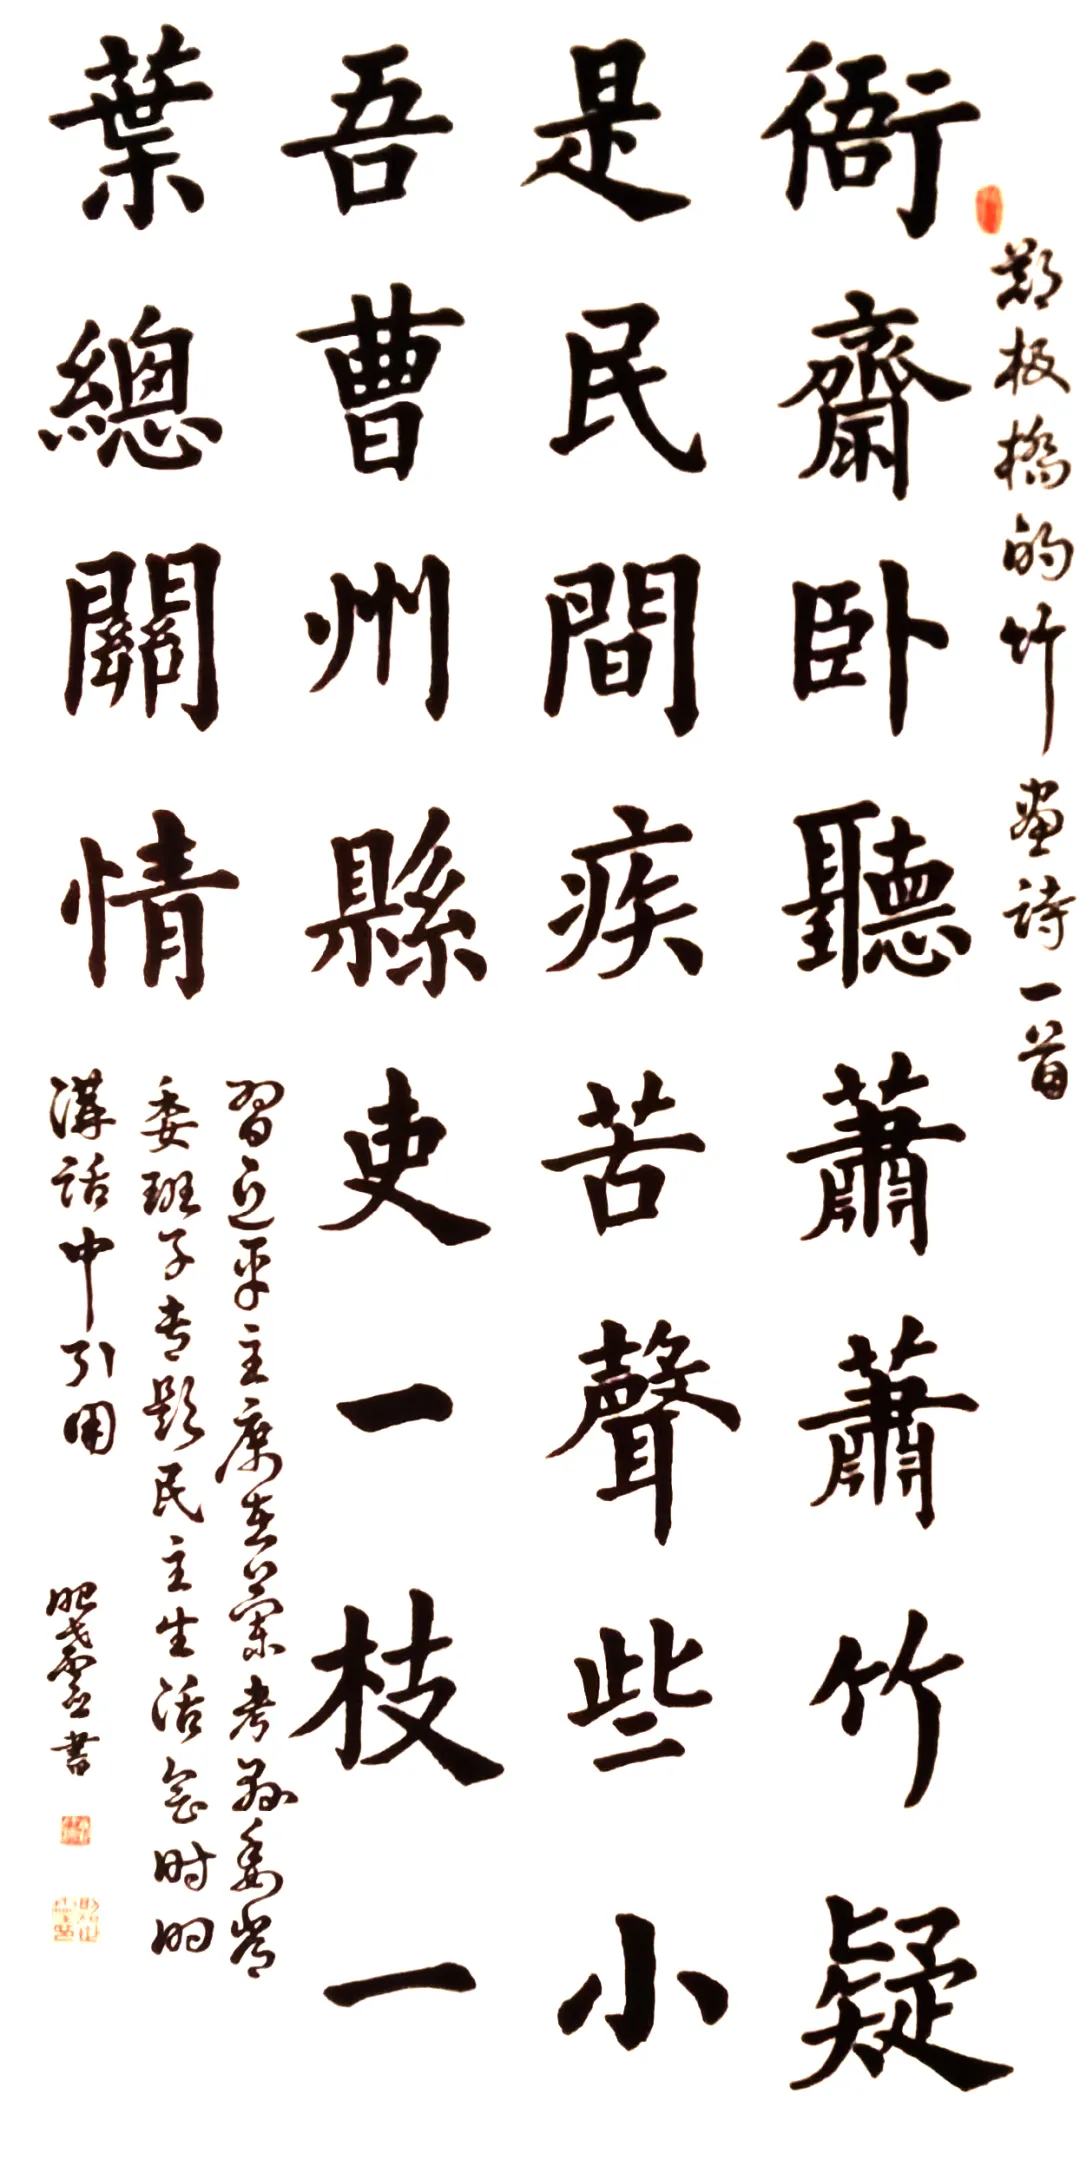 鄭板橋的竹畫詩一首
衙齋卧聽蕭蕭竹疑
是民間疾苦聲些小
吾曹州縣吏一枝一
葉總關情
習近平主席在蘭考縣委常
委班子专题民主生活会时的
講話中引用
書